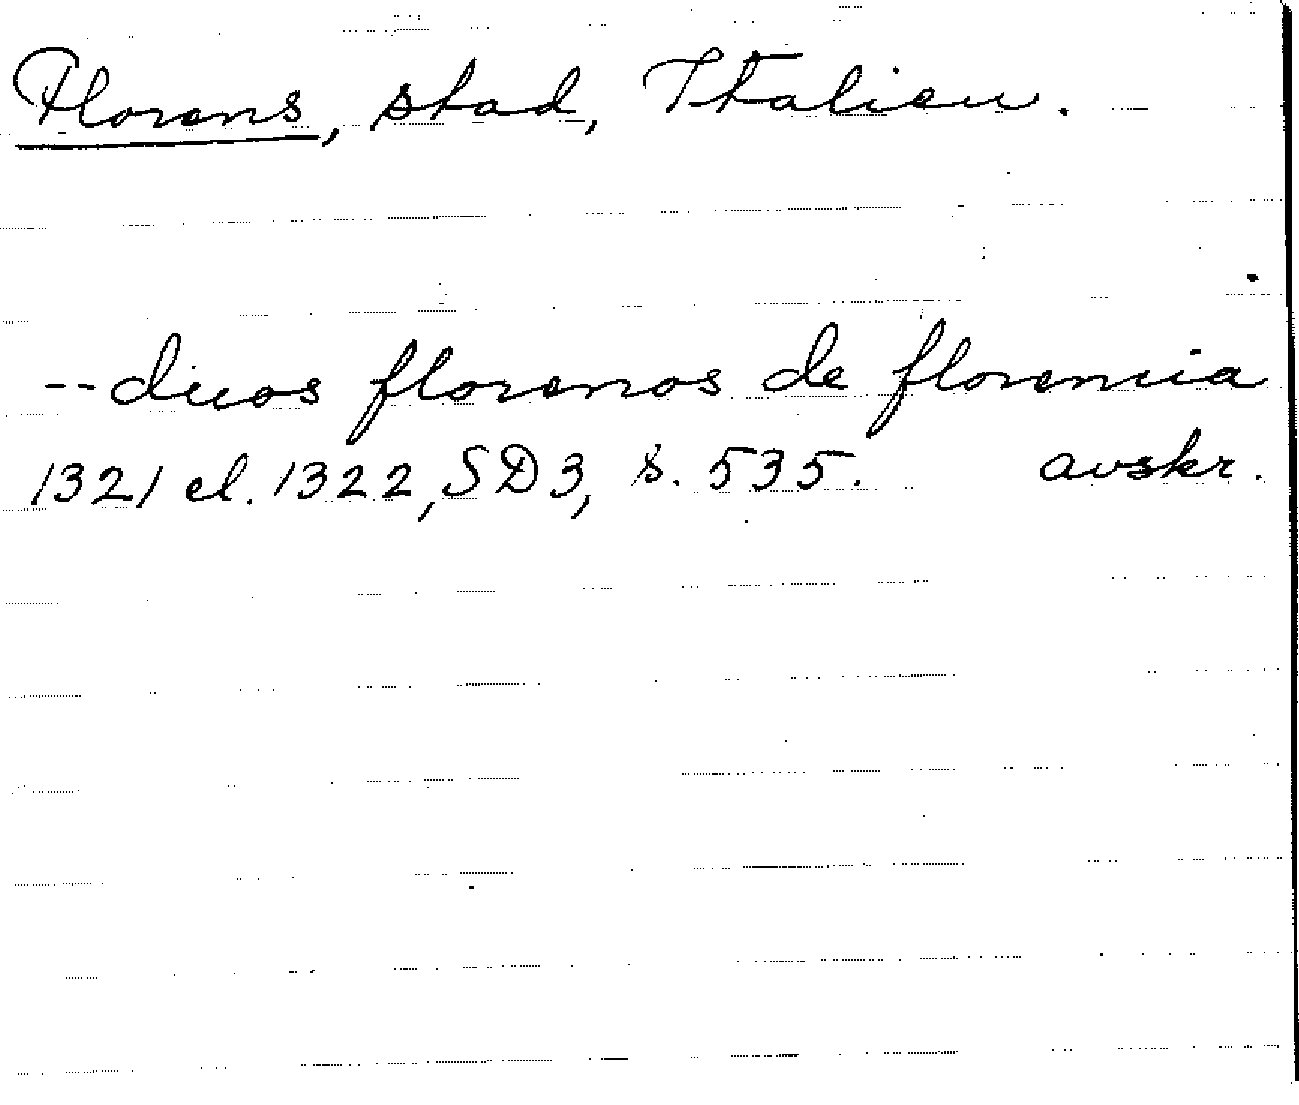 Florens, stad, Italien.
--dicos florenos de florencia
1321 el. 1322, SD3, s. 535. avskr.